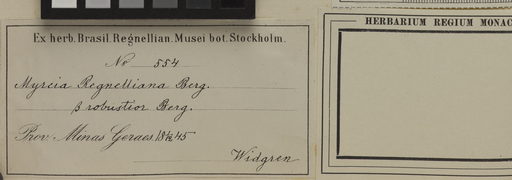 Ex herb. Brasil. Regnellian. Musei bot. Stockholm.
No 554
Myrcia Regnelliana Berg.
β robustior Berg.
Prov. Minas Geraes 18 45
Widgren
HERBARIUM REGIUM MONAC